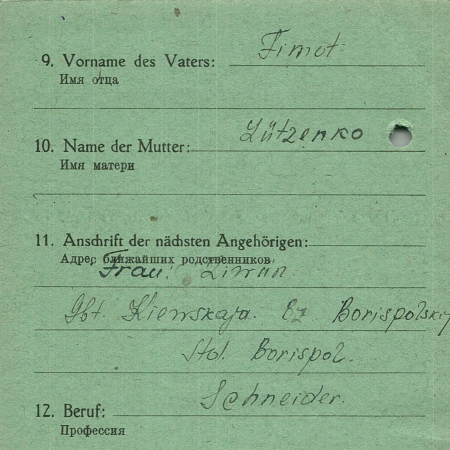 9. Vorname des Vaters: Timot
Имя отца
10. Name der Mutter: Lützenko
Имя матери
11. Anschrift der nächsten Angehörigen:
Адрес ближайших родственников
Frau:
Gbt. Kiewskaja. Bz Borispolskij
Std. Borispol.
12. Beruf: Schneider.
Профессия